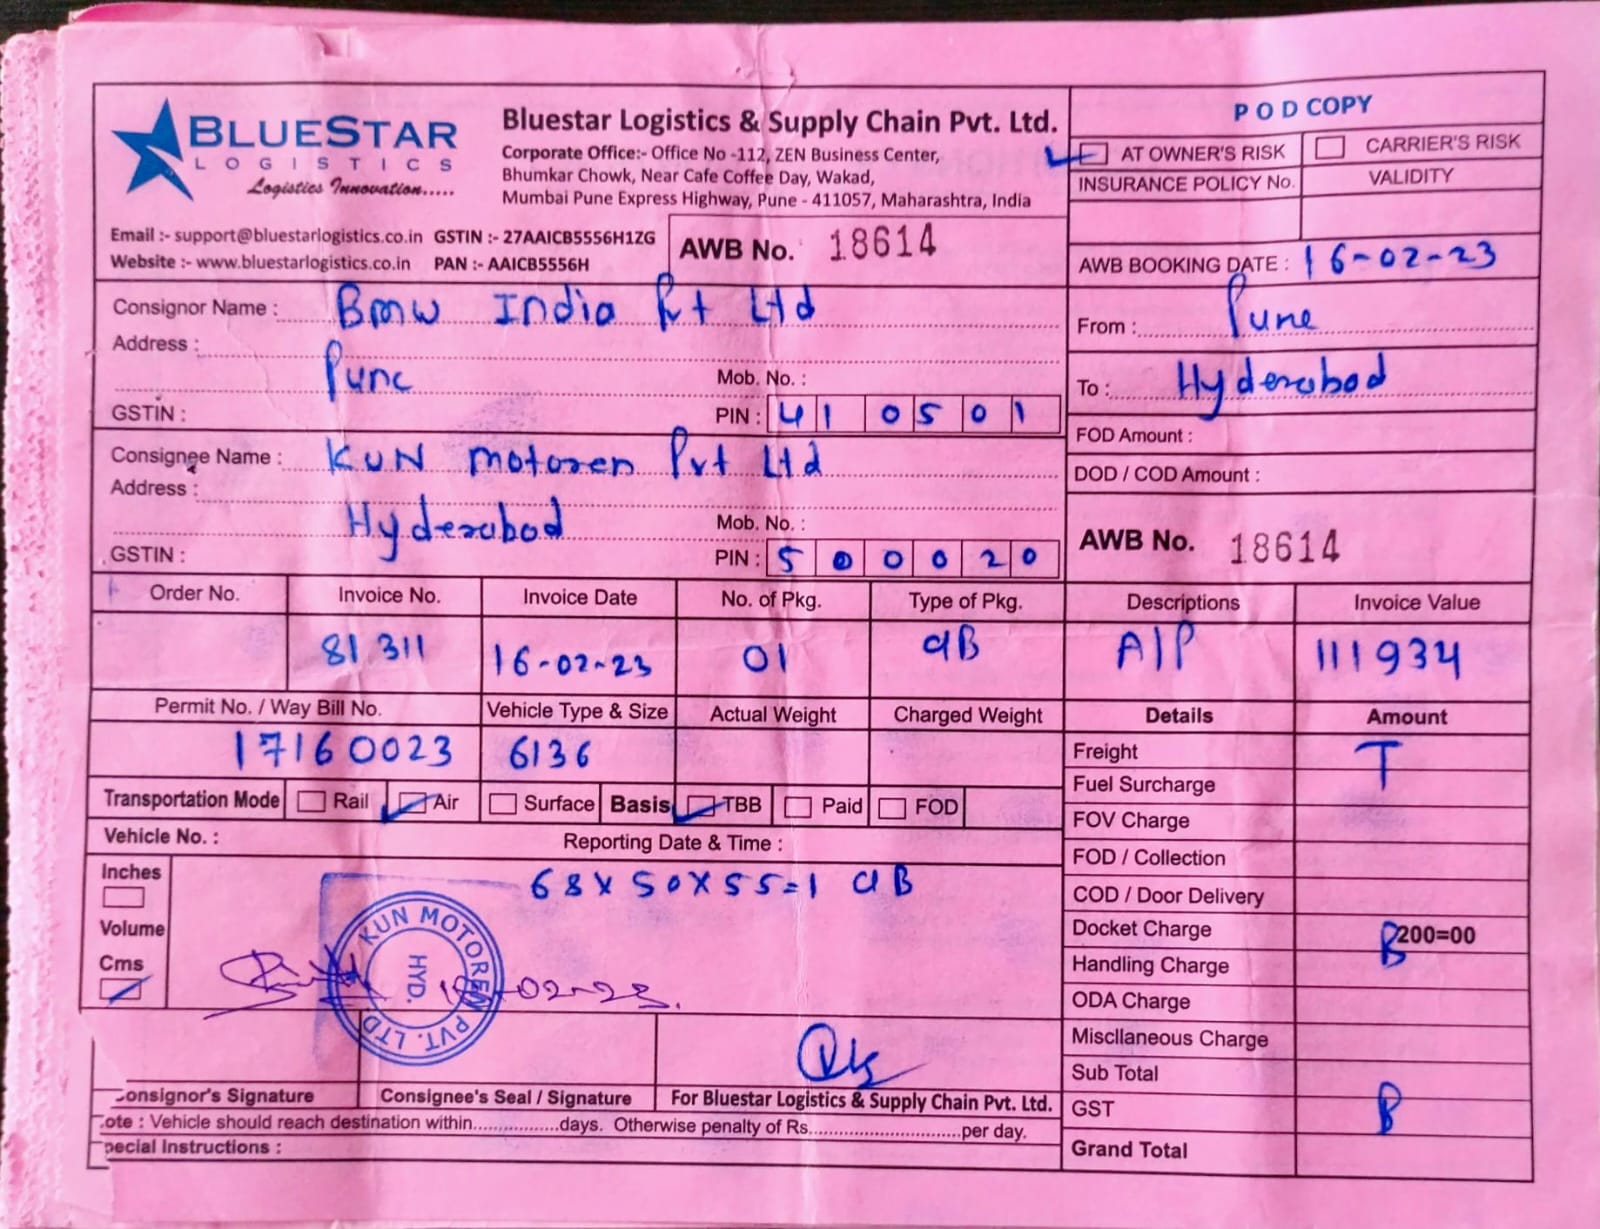 BLUESTAR
LOGISTICS
Logistics Innovation.....
Bluestar Logistics & Supply Chain Pvt. Ltd.
Corporate Office:- Office No -112, ZEN Business Center,
Bhumkar Chowk, Near Cafe Coffee Day, Wakad,
Mumbai Pune Express Highway, Pune - 411057, Maharashtra, India
POD COPY
AT OWNER'S RISK CARRIER'S RISK
INSURANCE POLICY No. VALIDITY
Email :- support@bluestarlogistics.co.in GSTIN :- 27AAICB5556H1ZG
Website :- www.bluestarlogistics.co.in PAN :- AAICB5556H
AWB No. 18614
AWB BOOKING DATE : 16-02-23
Consignor Name : Bmw India Pvt Ltd
Address :
Pune
Mob. No. :
GSTIN :
PIN : 410501
From : Pune
To : Hyderabad
Consignee Name : KUN motoren Pvt Ltd
Address :
Hyderabad
Mob. No. :
GSTIN :
PIN : 500020
FOD Amount :
DOD / COD Amount :
AWB No. 18614
Order No. Invoice No. Invoice Date No. of Pkg. Type of Pkg. Descriptions Invoice Value
81311 16-02-23 01 CB A/P 111934
Permit No. / Way Bill No. Vehicle Type & Size Actual Weight Charged Weight Details Amount
17160023 6136
Transportation Mode Rail Air Surface Basis TBB Paid FOD
Vehicle No. : Reporting Date & Time :
Inches
Volume
Cms
68x50x55=1 CB
KUN MOTOREN PVT. LTD.
HYD.
-02-23.
Freight T
Fuel Surcharge
FOV Charge
FOD / Collection
COD / Door Delivery
Docket Charge B 200=00
Handling Charge
ODA Charge
Miscllaneous Charge
Sub Total
GST B
Grand Total
onsignor's Signature Consignee's Seal / Signature For Bluestar Logistics & Supply Chain Pvt. Ltd.
ote : Vehicle should reach destination within................days. Otherwise penalty of Rs............................per day.
pecial Instructions :